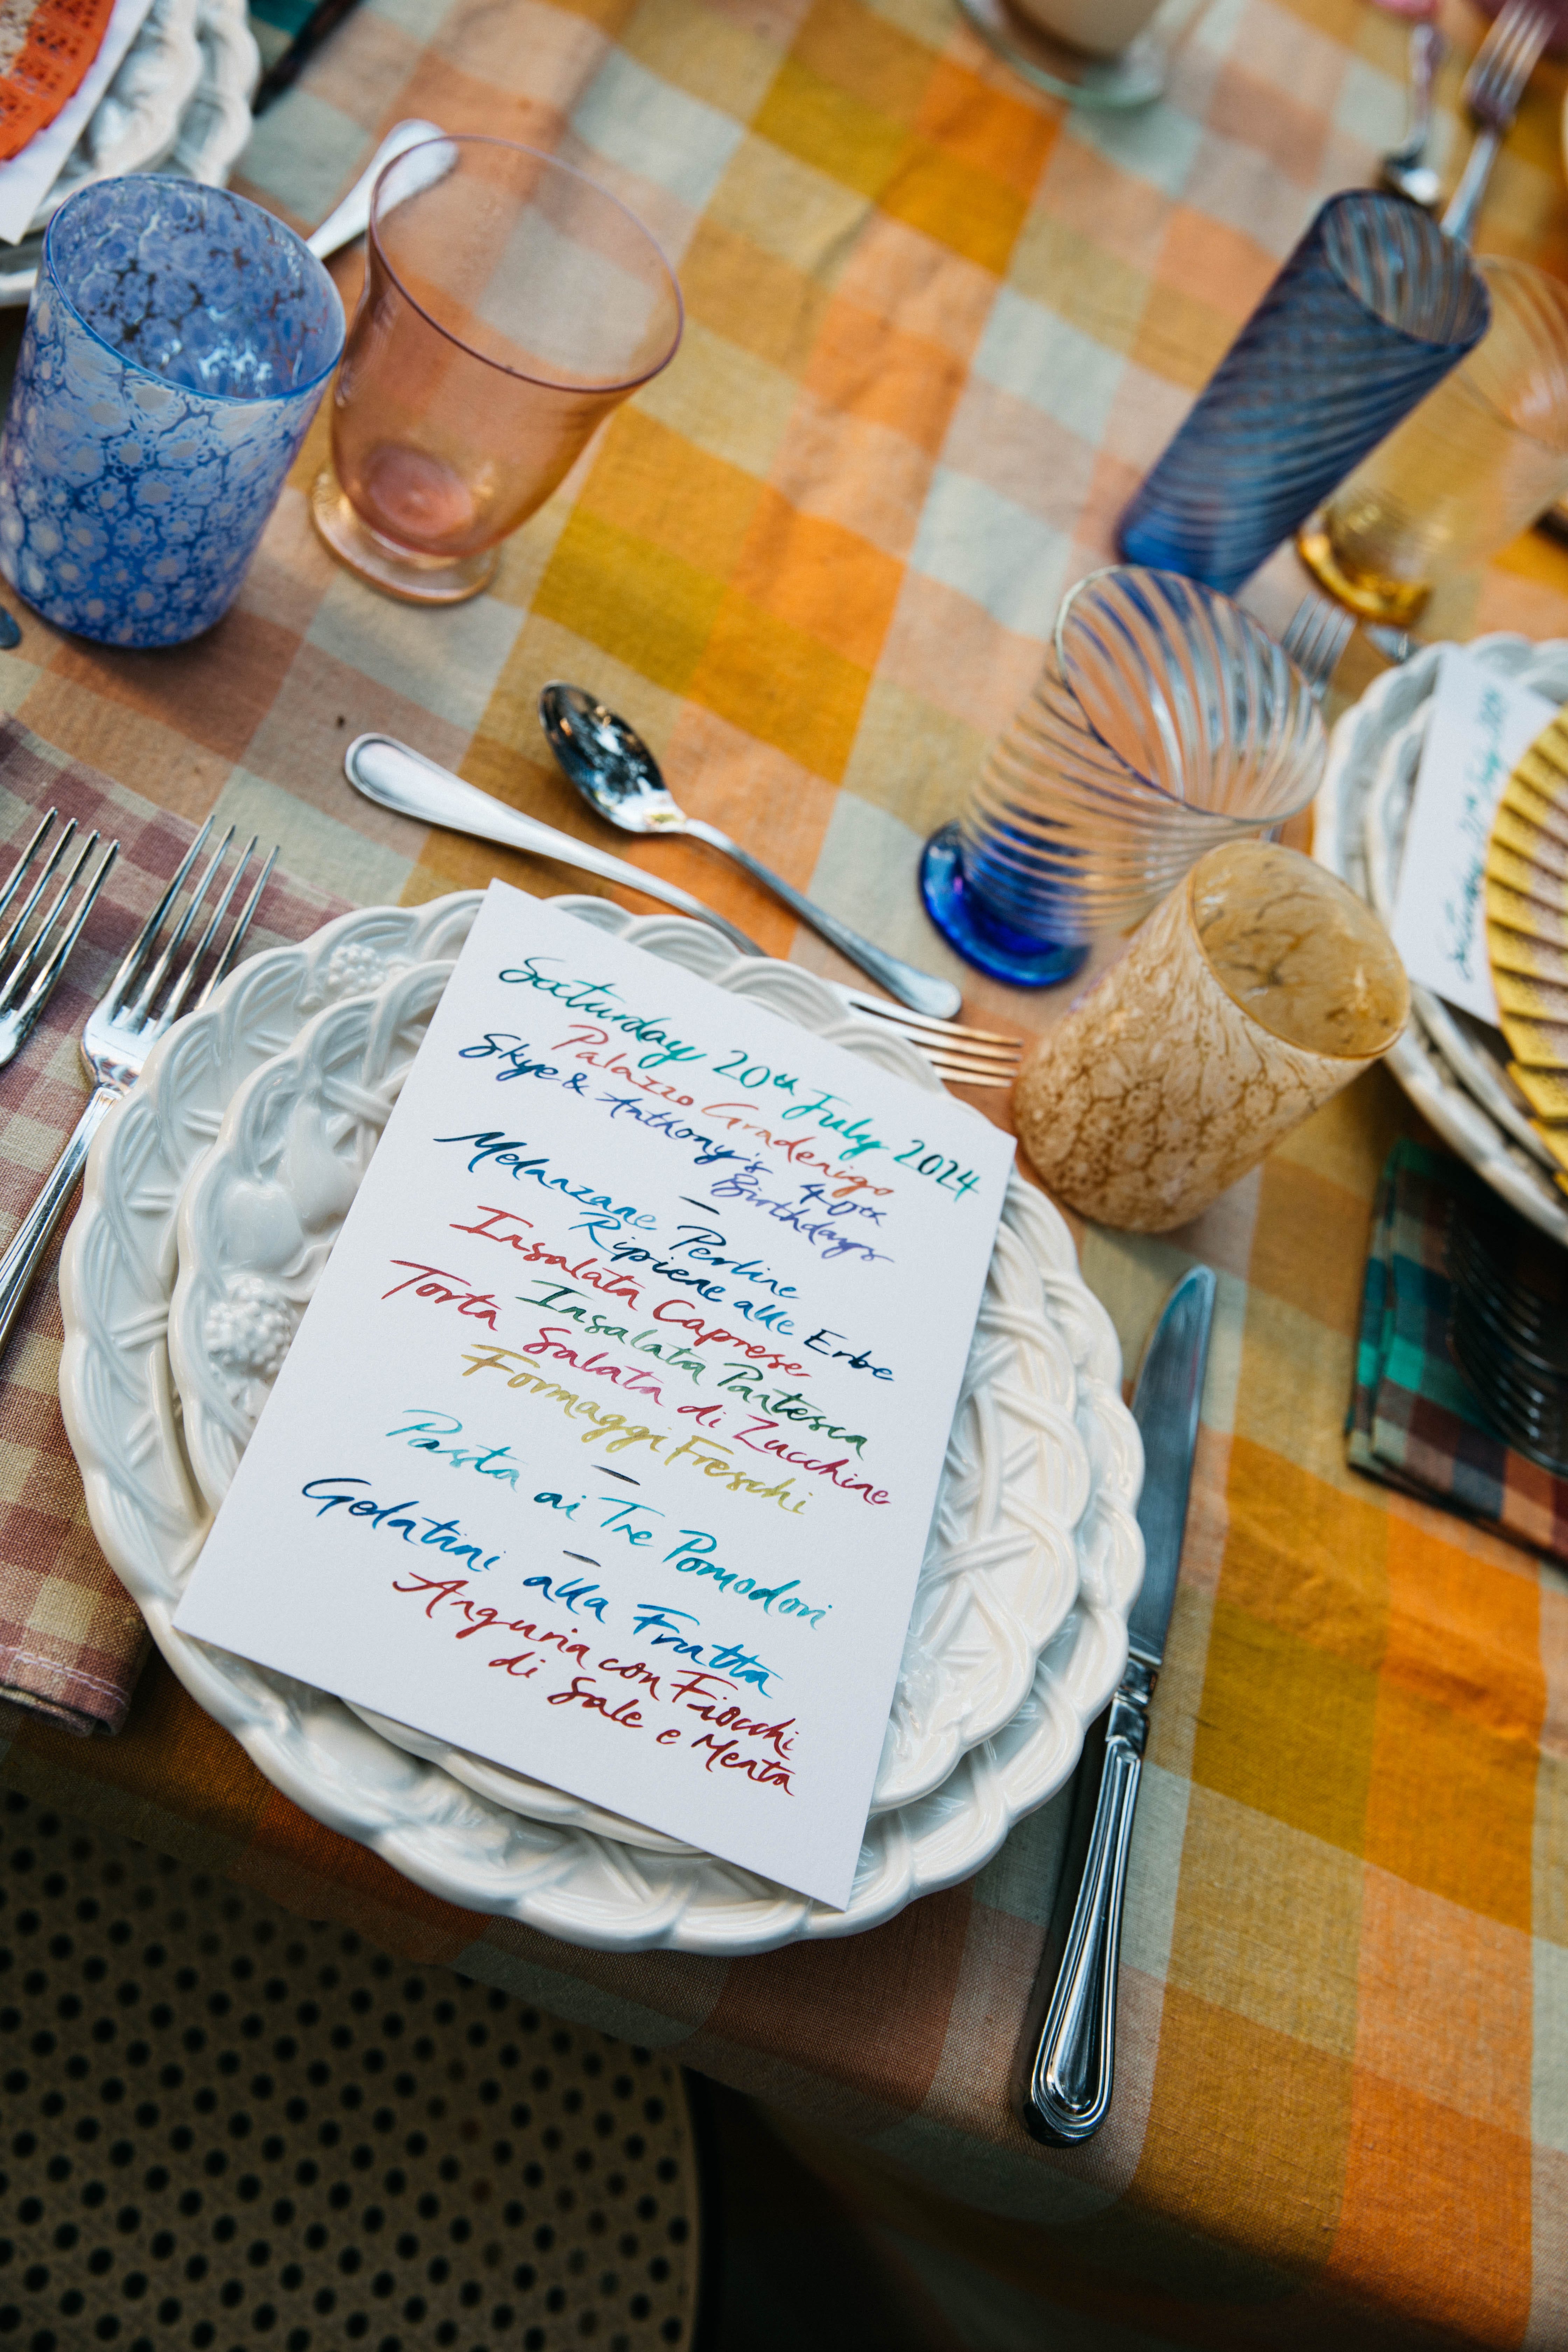 Saturday 20th July 2024
Palazzo Gradenigo
Skye & Anthony's 40th
Birthdays
—
Melanzane Perline
Ripiene alle Erbe
Insalata Caprese
Insalata Pantesca
Torta Salata di Zucchine
Formaggi Freschi
—
Pasta ai Tre Pomodori
—
Gelatini alla Frutta
Anguria con Fiocchi
di Sale e Menta
Saturday 20th July 2024